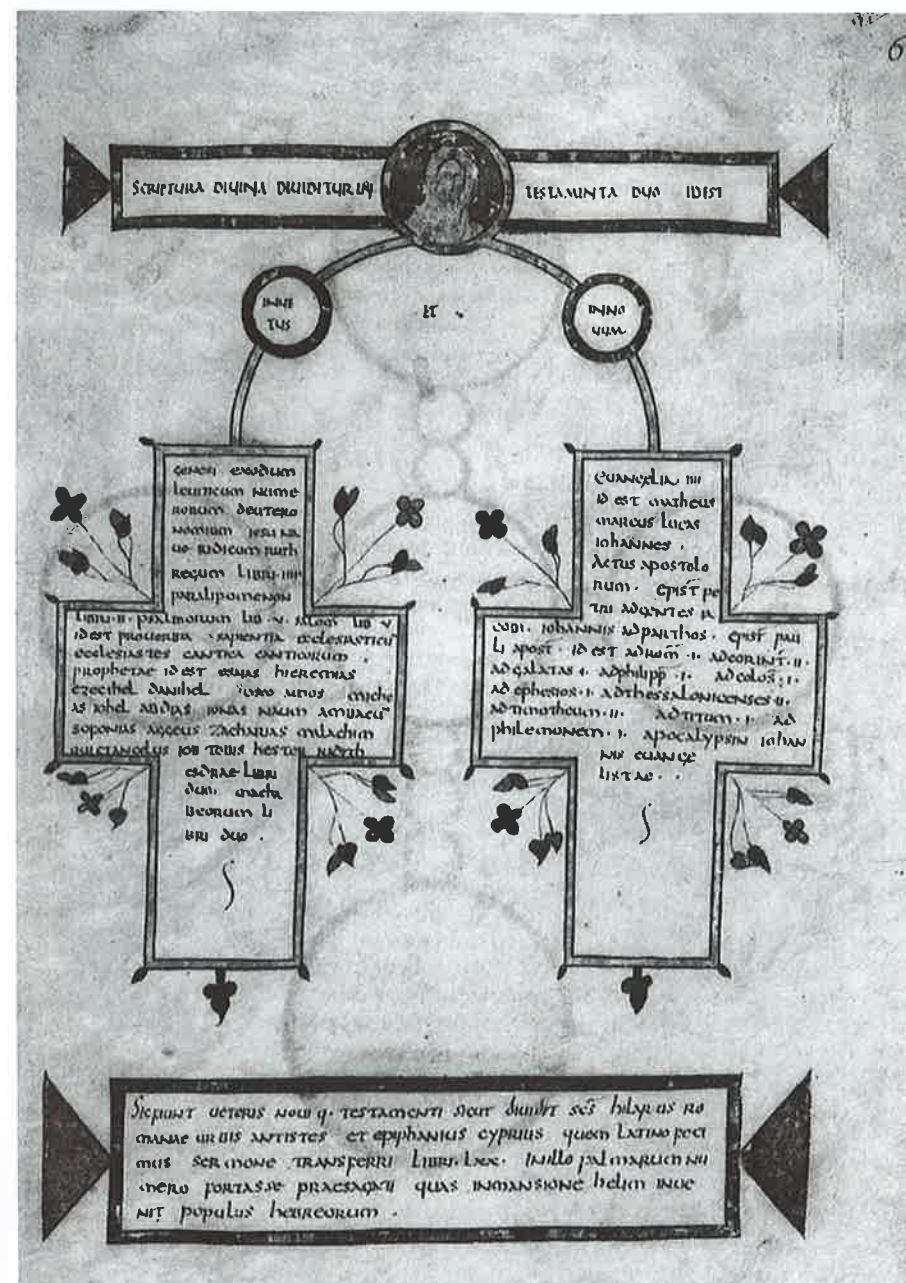 6
SCRIPTURA DIUINA DIUIDITUR IN
TESTAMINTA DUO IDEST
INUE
TUS
ET
INNO
UUM
genesi exodum
leuiticum nume
rorum deutero
nomium iesu na
ue iudicum ruth
regum libri iiii
paralipomenon
libri ii psalmorum lib v salom lib v
id est prouerbia sapientia ecclesiasticū
ecclesiastes cantica canticorum .
prophetae id est esaias hieremias
ezecihel danihel miche
as iohel abdias ionas naum
soponias aggeus zacharias malachim
iob tobis hester iudith
esdrae libri
duo . macha
beorum li
bri duo .
euangelia iiii
id est matheus
marcus lucas
iohannes .
actus apostolo
rum . epist pe
tri ad gentes
iohannis ad parthos . epist pau
li apost . id est ad rom . i . ad corint . ii .
ad galatas . i . ad philipp . i . ad colos . i .
ad ephesios . i . ad thessalonicenses . ii .
ad timotheum . ii . ad titum . i . ad
philemonem . i . apocalypsin iohan
nis euange
listae .
Sic fiunt ueteris noui q. testamenti sicut diuidit scs hilarus ro
manae urbis antistes et epiphanius cyprius quem latino feci
mus sermone transferri libri . lxx . in illo palmarum nu
mero fortasse praesagati quas in mansione helim inue
nit populus hebreorum .